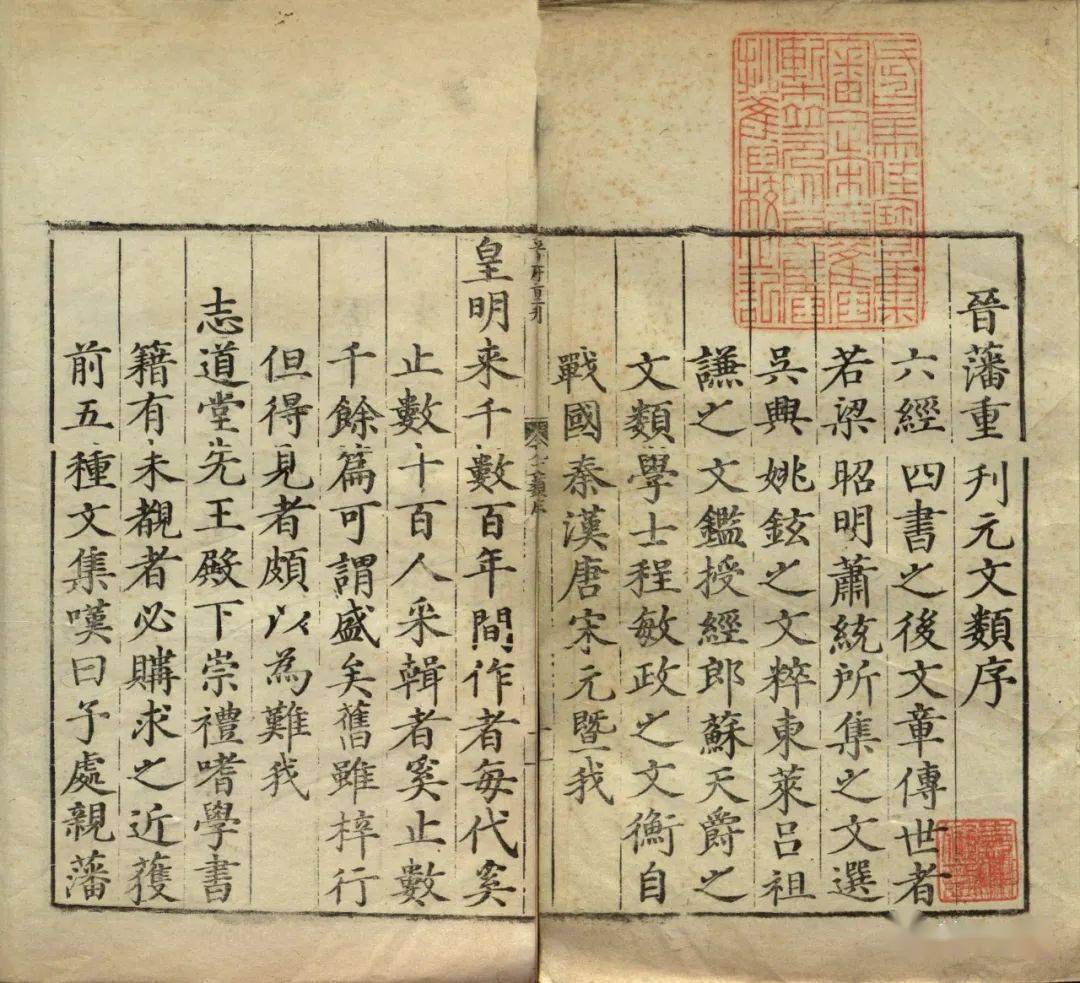 晉藩重刊元文類序
六經四書之後文章傳世者
若梁昭明蕭統所集之文選
吳興姚鉉之文粹東萊呂祖
謙之文鑑授經郎蘇天爵之
文類學士程敏政之文衡自
戰國秦漢唐宋元暨我
皇明来千數百年間作者每代奚
止數十百人采輯者奚止數
千餘篇可謂盛矣舊雖梓行
但得見者頗以為難我
志道堂先王殿下崇禮嗜學書
籍有未覩者必購求之近獲
前五種文集嘆曰予處親藩